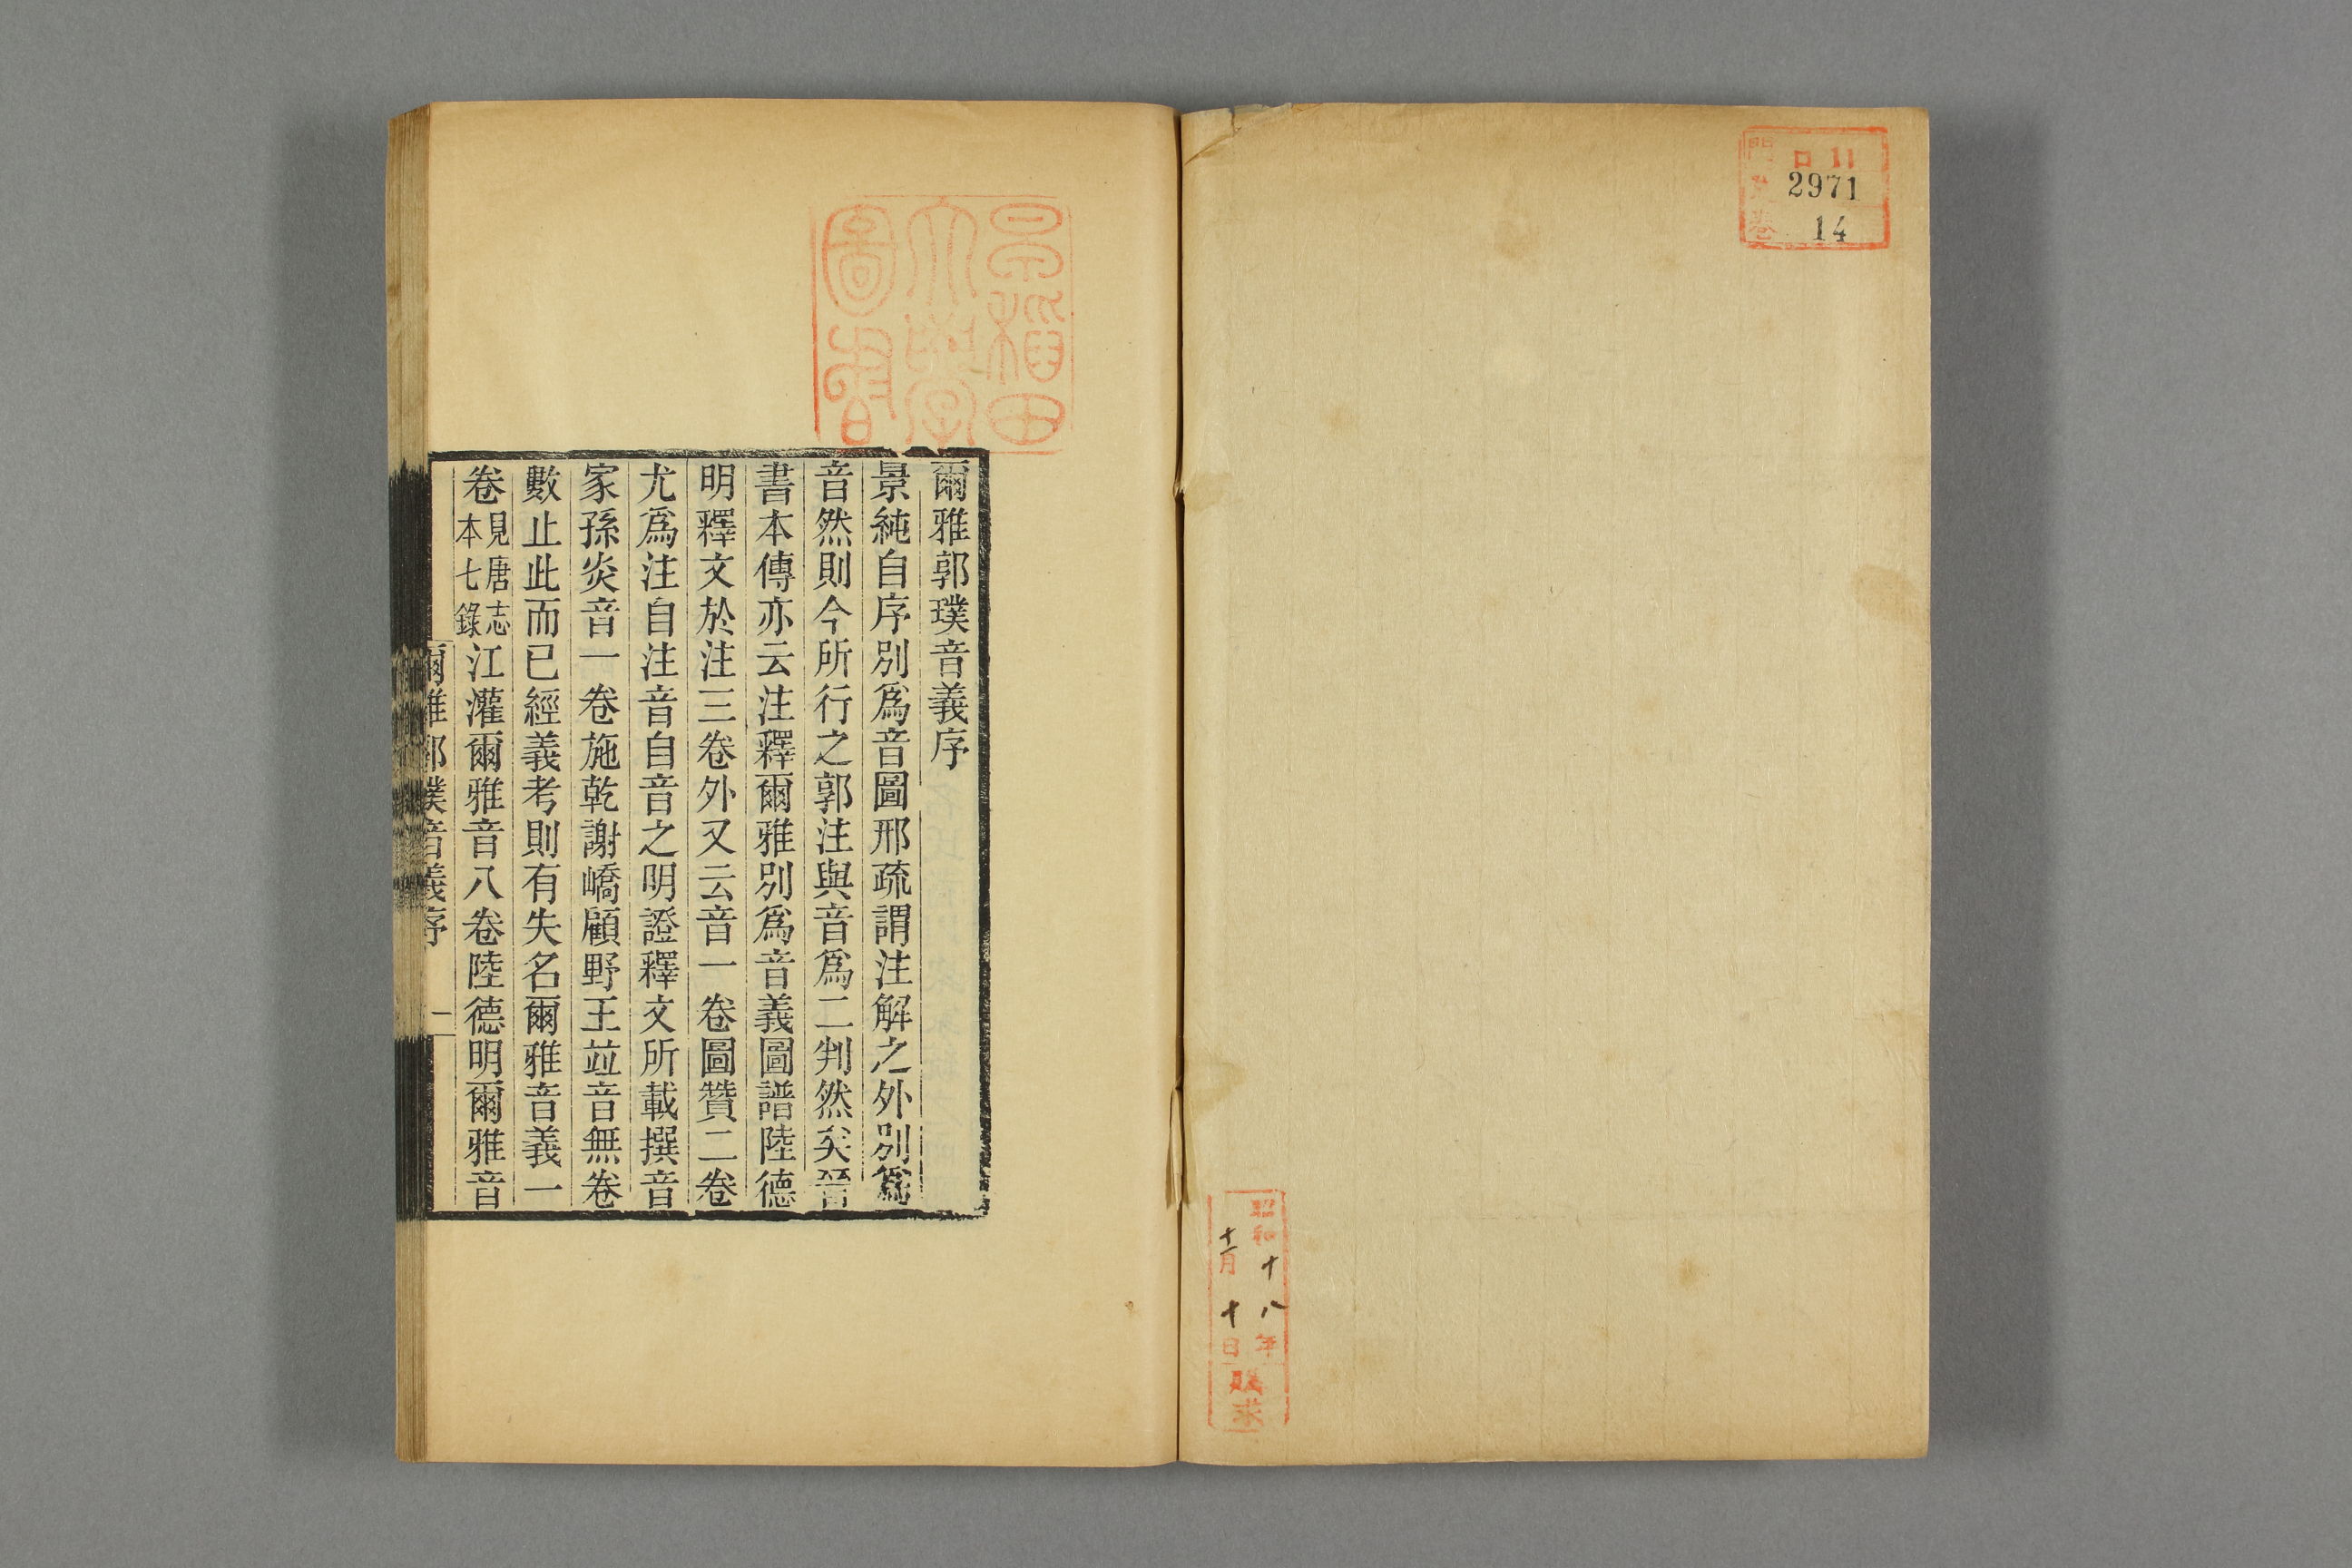 門
2971
14
卷
昭和十八年
十一月十日
購求
早稲田
大學
圖書
爾雅郭璞音義序
景純自序別爲音圖邢疏謂注解之外別爲
音然則今所行之郭注與音爲二判然矣晉
書本傳亦云注釋爾雅別爲音義圖譜陸德
明釋文於注三卷外又云音一卷圖贊二卷
尤爲注自注音自音之明證釋文所載撰音
家孫炎音一卷施乾謝嶠顧野王竝音無卷
數止此而已經義考則有失名爾雅音義一
卷見唐志本七錄江灌爾雅音八卷陸德明爾雅音
爾雅郭璞音義序